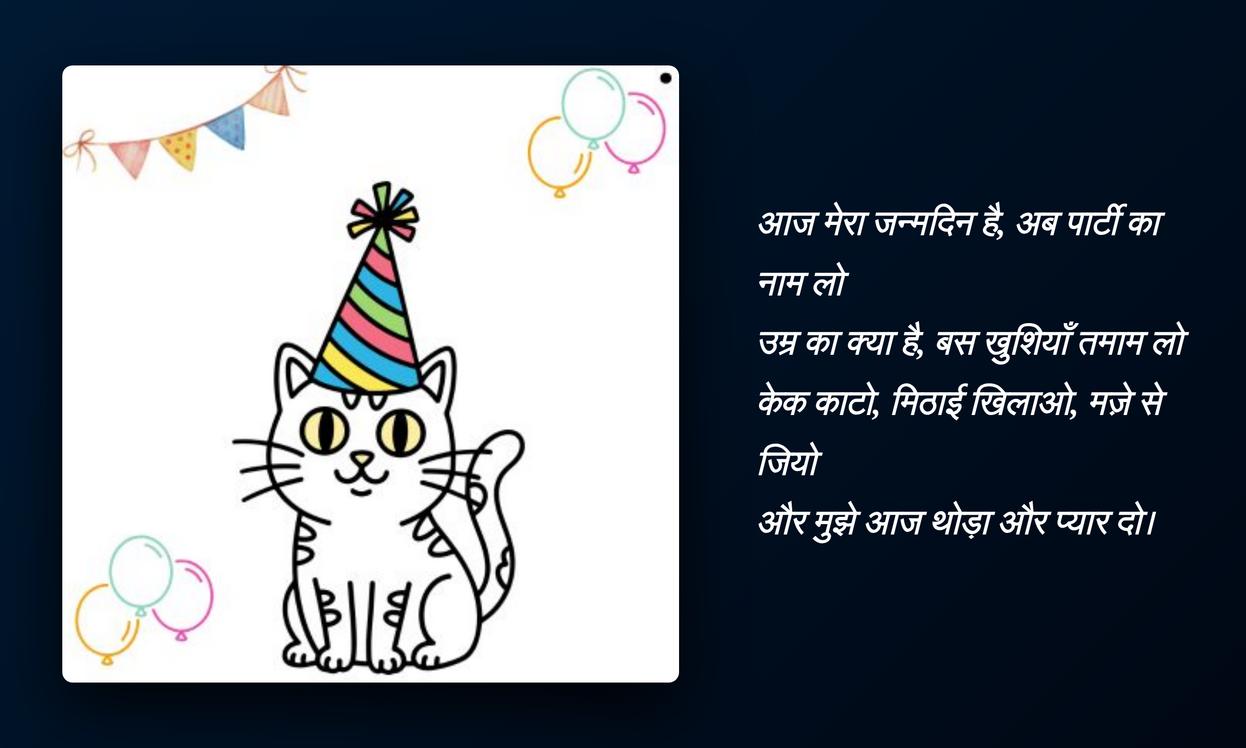 आज मेरा जन्मदिन है, अब पार्टी का
नाम लो
उम्र का क्या है, बस खुशियाँ तमाम लो
केक काटो, मिठाई खिलाओ, मज़े से
जियो
और मुझे आज थोड़ा और प्यार दो।